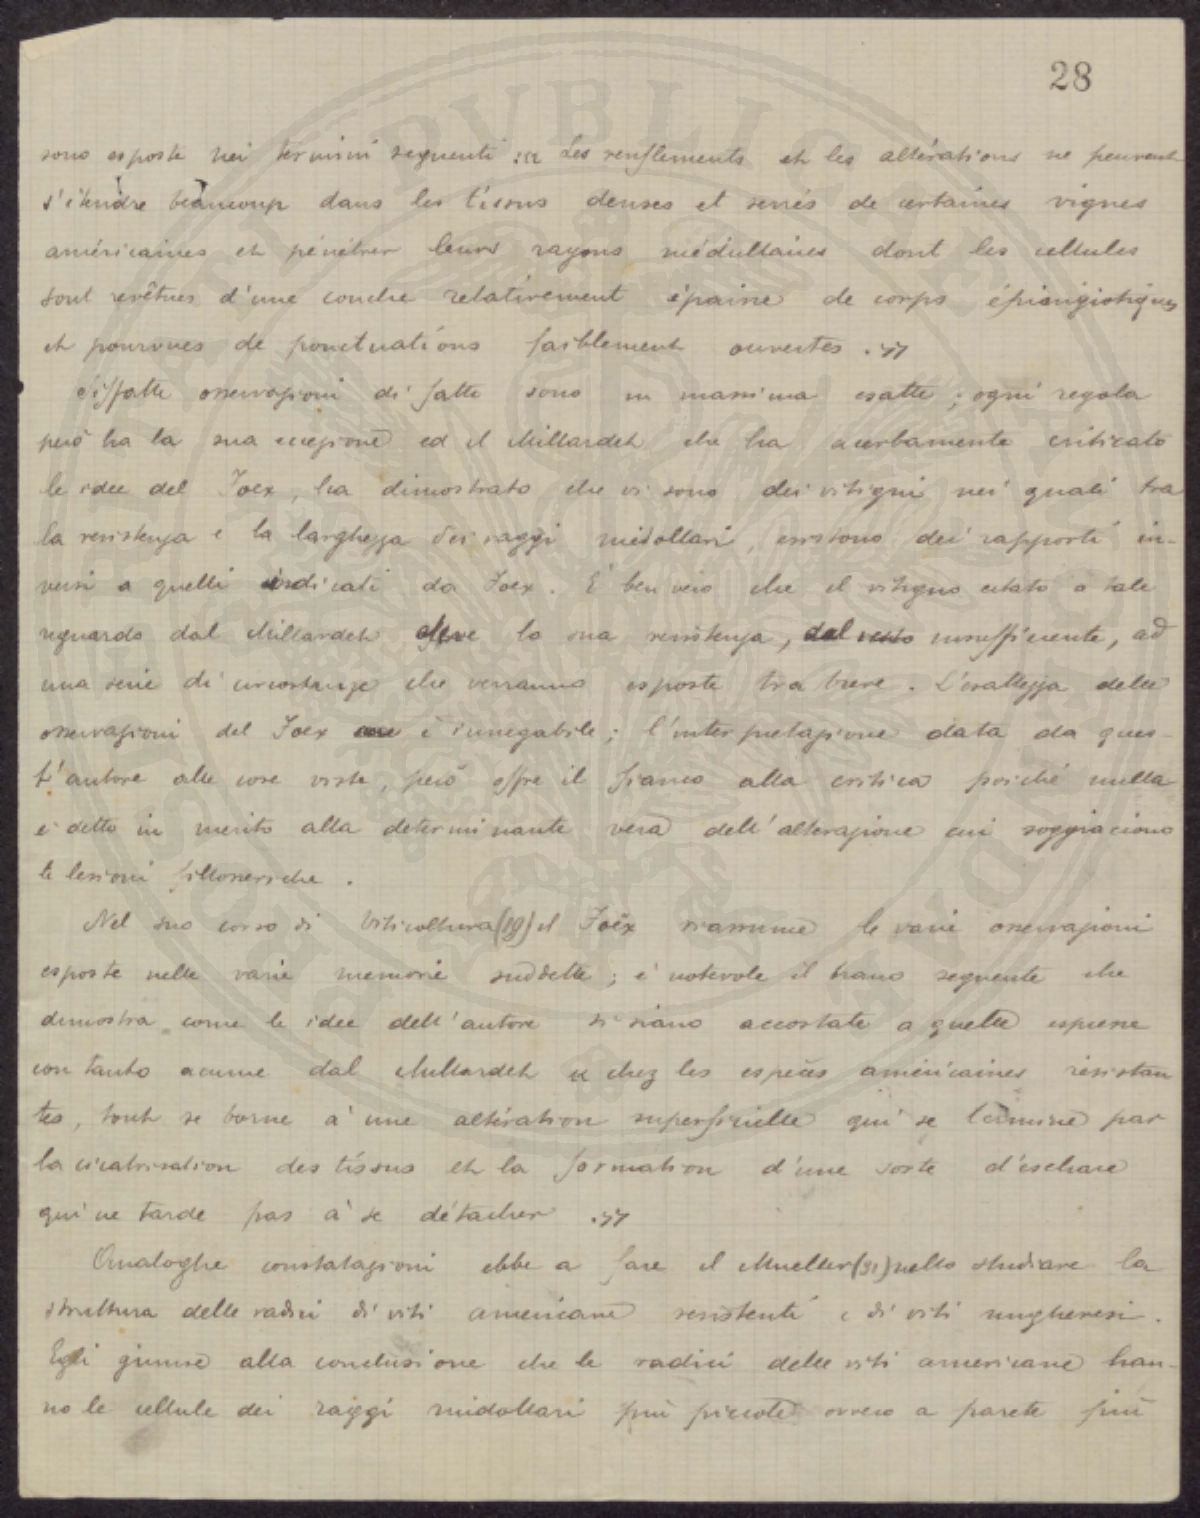 28
sono esposte nei termini seguenti : « Les renflements et les altérations ne peuvent
s'étendre beaucoup dans les tissus denses et serrés de certaines vignes
américaines et pénétrer leurs rayons médullaires dont les cellules
sont revêtues d'une couche relativement épaisse de corps épiangiotiques
et pourvues de ponctuations faiblement ouvertes . »
Siffatte osservazioni di fatto sono in massima esatte ; ogni regola
però ha la sua eccezione ed il Millardet che ha acerbamente criticato
le idee del Foex, ha dimostrato che vi sono dei vitigni nei quali tra
la resistenza e la larghezza dei raggi midollari, esistono dei rapporti in-
versi a quelli indicati da Foex. È ben vero che il vitigno citato a tale
riguardo dal Millardet deve la sua resistenza, del resto insufficiente, ad
una serie di circostanze che verranno esposte tra breve. L'esattezza delle
osservazioni del Foex è innegabile ; l'interpretazione data da ques-
t'autore alle cose viste, però offre il fianco alla critica poiché nulla
è detto in merito alla determinante vera dell'alterazione cui soggiaciono
le lesioni fillosseriche .
Nel suo corso di Viticoltura (19) il Foëx riassume le varie osservazioni
esposte nelle varie memorie suddette ; è notevole il brano seguente che
dimostra come le idee dell'autore si siano accostate a quelle espresse
con tanto acume dal Millardet « chez les espèces américaines résistan
tes, tout se borne à une altération superficielle qui se termine par
la cicatrisation des tissus et la formation d'une sorte d'eschare
qui ne tarde pas à se détacher . »
Analoghe constatazioni ebbe a fare il Mueller (31) nello studiare la
struttura delle radici di viti americane resistenti e di viti ungheresi .
Egli giunse alla conclusione che le radici delle viti americane han-
no le cellule dei raggi midollari più piccole ovvero a parete più